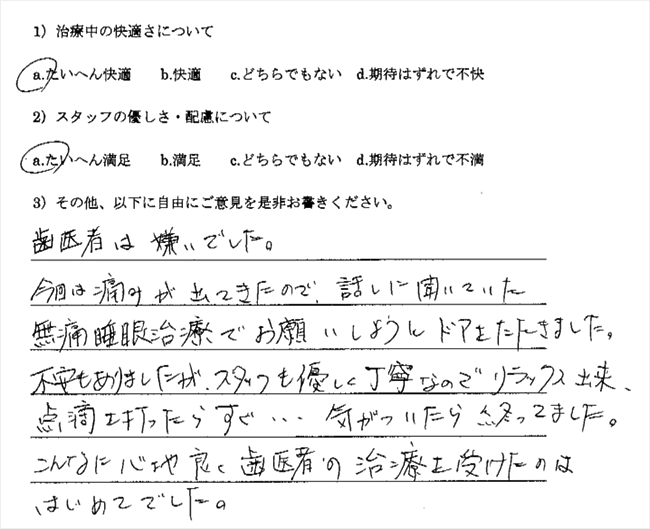 1）治療中の快適さについて
a.たいへん快適　b.快適　c.どちらでもない　d.期待はずれで不快
2）スタッフの優しさ・配慮について
a.たいへん満足　b.満足　c.どちらでもない　d.期待はずれで不満
3）その他、以下に自由にご意見を是非お書きください。
歯医者は嫌いでした。
今回は痛みが出てきたので、話しに聞いていた
無痛睡眠治療でお願いしようとドアをたたきました。
不安もありましたが、スタッフも優しく丁寧なのでリラックス出来、
点滴を打ったらすぐ・・・気がついたら終ってました。
こんなに心地良く歯医者の治療を受けたのは
はじめてでした。